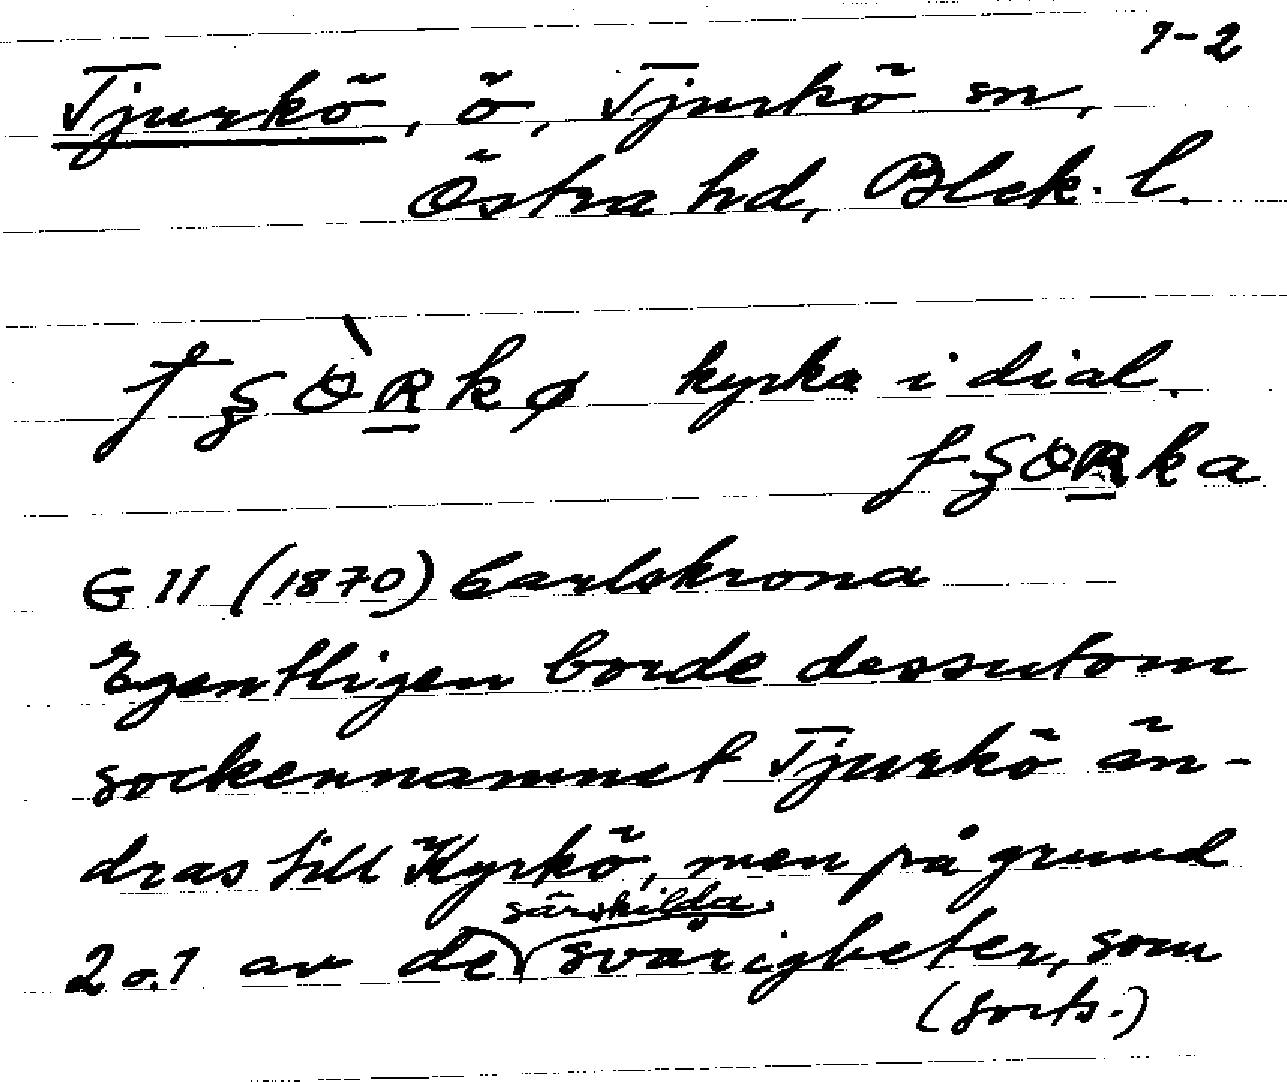 1-2
Tjurkö, ö, Tjurkö sn,
Östra hd, Blek. l.
kyrka i dial.
G 11 (1870) Carlskrona
Egentligen borde dessutom
sockennamnet Tjurkö än-
dras till Kyrkö, men på grund
särskilda
2 o. 1 av de svårigheter, som
(forts.)